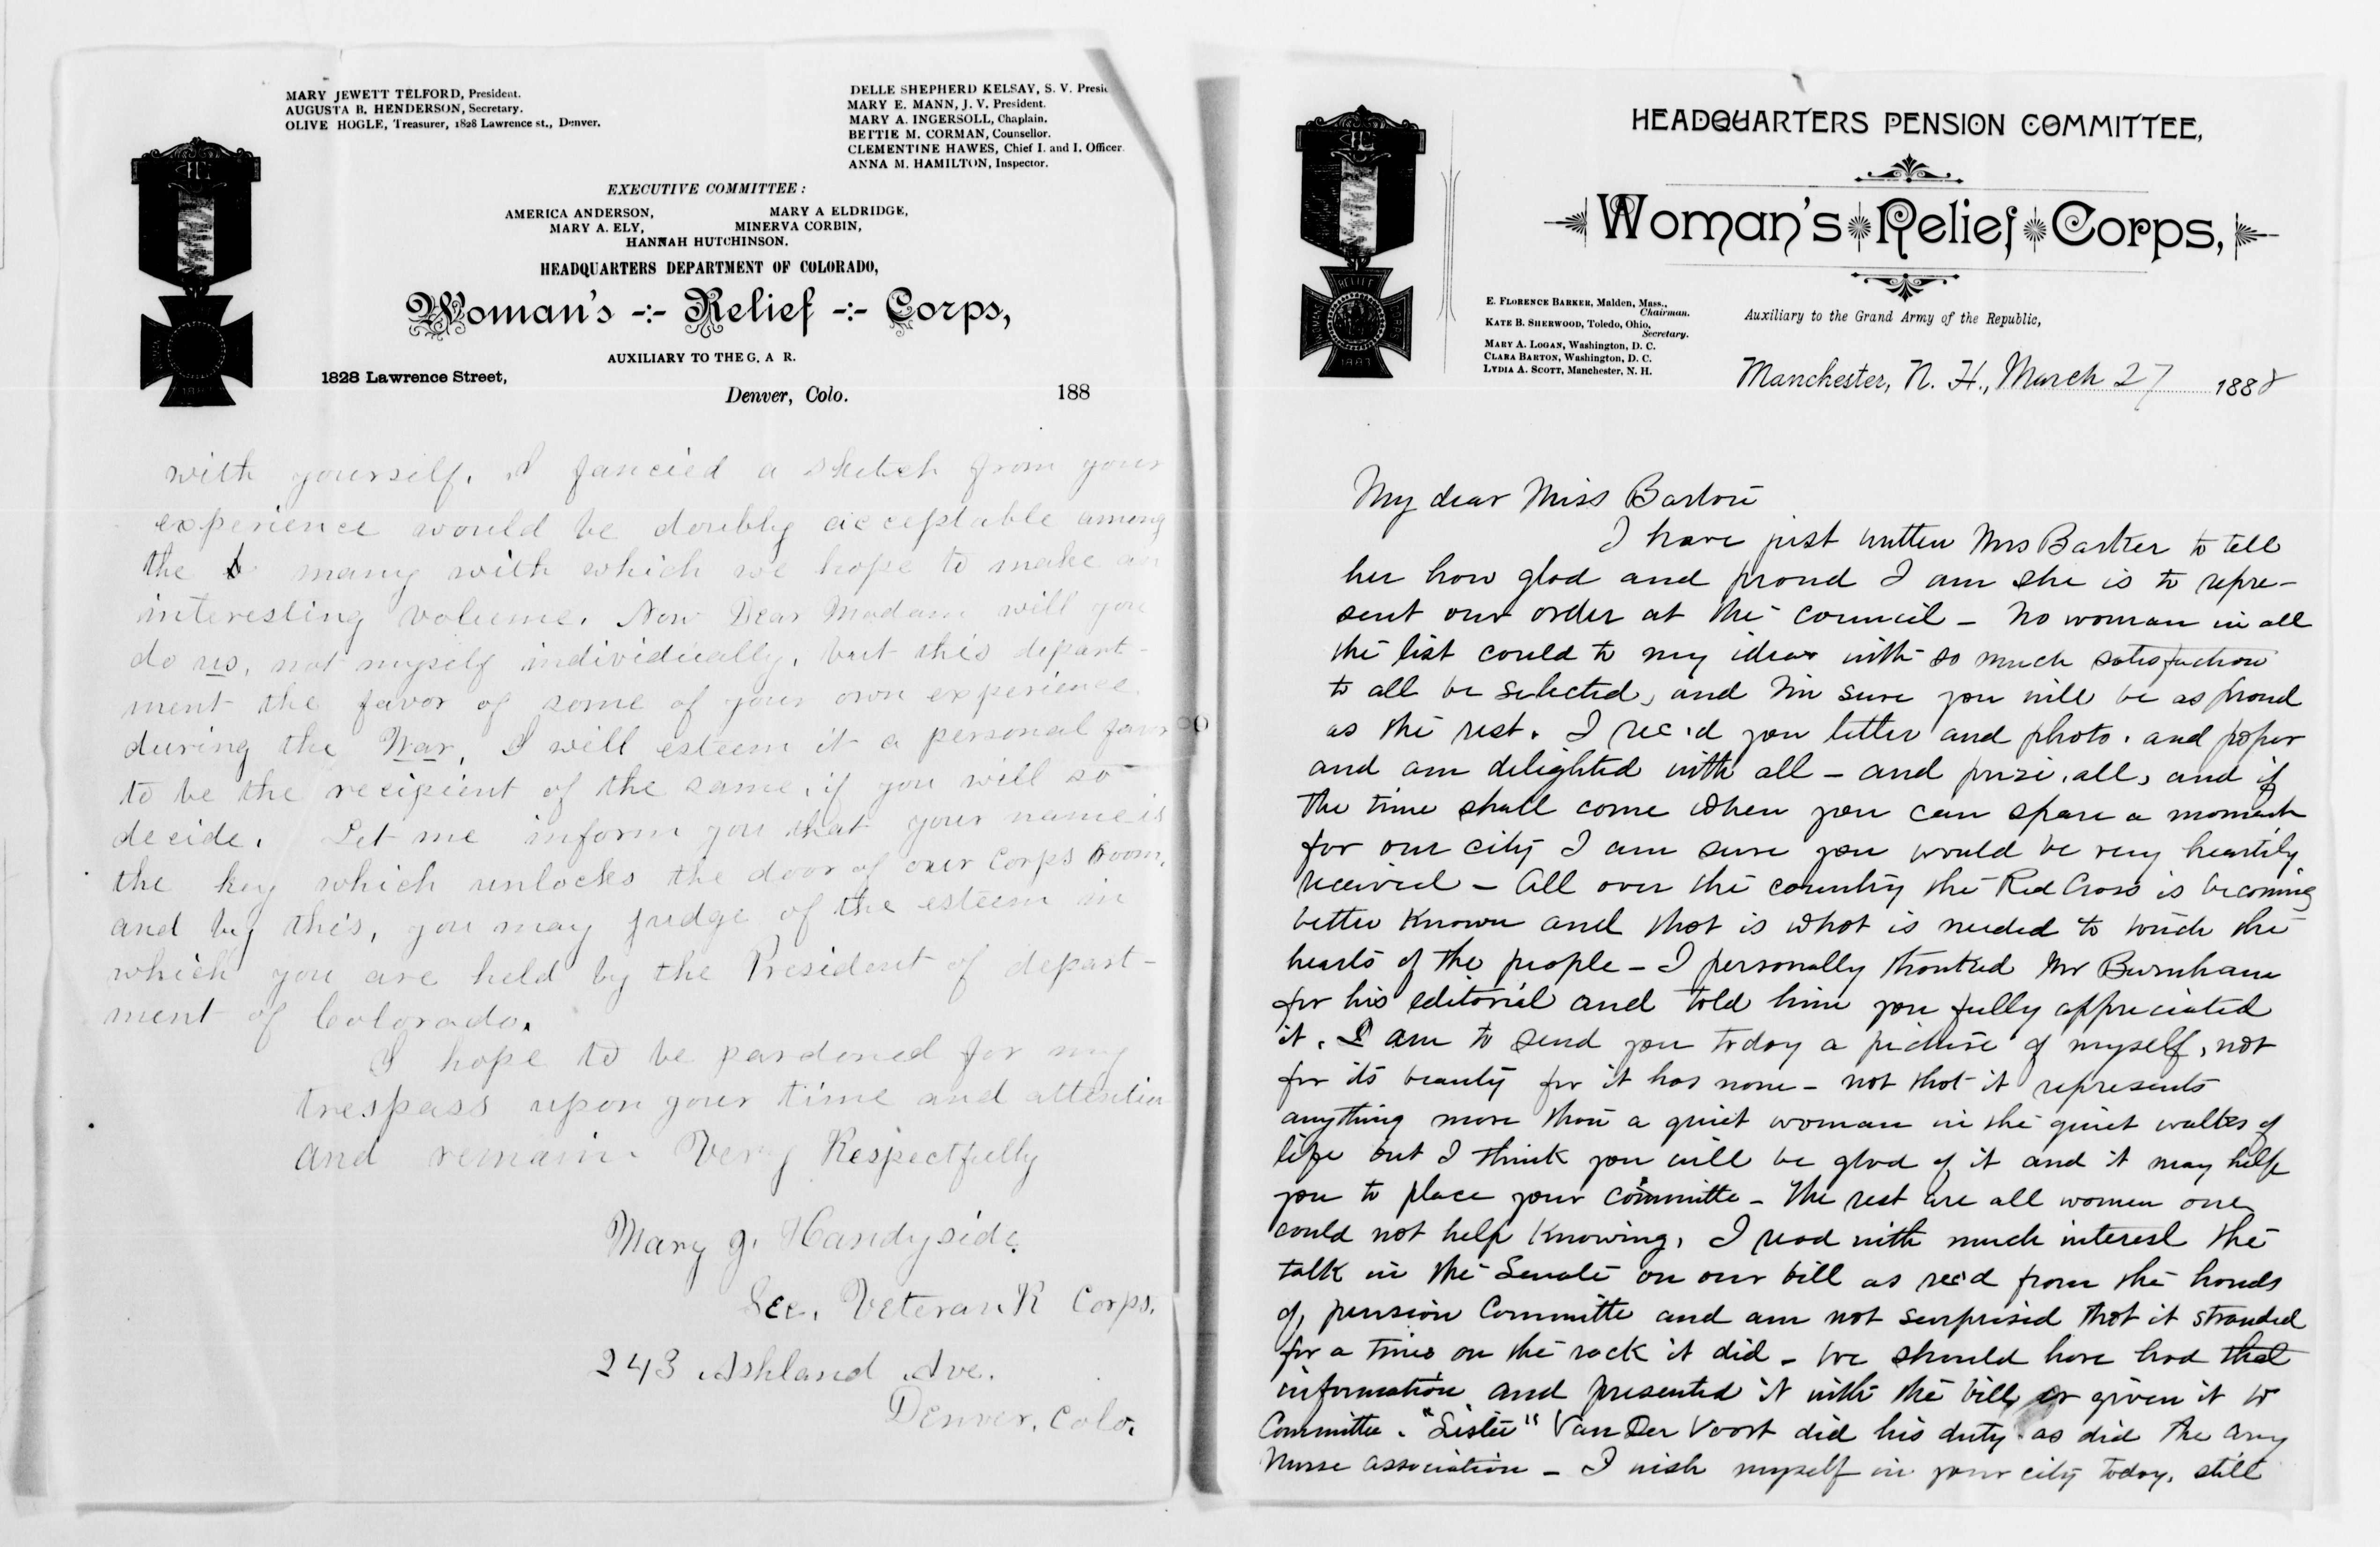 MARY JEWETT TELFORD, President.
AUGUSTA B. HENDERSON, Secretary.
OLIVE HOGLE, Treasurer, 1828 Lawrence st., Denver.
DELLE SHEPHERD KELSAY, S. V. Presi
MARY E. MANN, J. V. President.
MARY A. INGERSOLL, Chaplain.
BETTIE M. CORMAN, Counsellor.
CLEMENTINE HAWES, Chief I. and I. Officer.
ANNA M. HAMILTON, Inspector.
EXECUTIVE COMMITTEE:
AMERICA ANDERSON, MARY A ELDRIDGE,
MARY A. ELY, MINERVA CORBIN,
HANNAH HUTCHINSON.
HEADQUARTERS DEPARTMENT OF COLORADO,
Woman's -:- Relief -:- Corps,
AUXILIARY TO THE G. A R.
1828 Lawrence Street,
Denver, Colo. 188
with yourself. I fancied a sketch from your
experience would be doubly acceptable among
the many with which we hope to make an
interesting volume. Now Dear Madam will you
do us, not myself individually, but this depart-
ment the favor of some of your own experience
during the War, I will esteem it a personal favor
to be the recipient of the same, if you will so
decide. Let me inform you that your name is
the key which unlocks the door of our Corps room,
and by this, you may judge of the esteem in
which you are held by the President of depart-
ment of Colorado.
I hope to be pardoned for my
trespass upon your time and attention
and remain Very Respectfully
Mary J. Handyside.
Sec. Veteran R Corps.
243 Ashland Ave.
Denver, Colo.
HEADQUARTERS PENSION COMMITTEE,
Woman's Relief Corps,
E. FLORENCE BARKER, Malden, Mass.,
Chairman.
KATE B. SHERWOOD, Toledo, Ohio,
Secretary.
MARY A. LOGAN, Washington, D. C.
CLARA BARTON, Washington, D. C.
LYDIA A. SCOTT, Manchester, N. H.
Auxiliary to the Grand Army of the Republic,
Manchester, N. H., March 27 1888
My dear Miss Barton
I have just written Mrs Barker to tell
her how glad and proud I am she is to repre-
sent our order at the council - No woman in all
the list could to my idea with so much satisfaction
to all be selected, and I'm sure you will be as proud
as the rest. I rec'd you letter and photo. and paper
and am delighted with all - and prize, all, and if
the time shall come when you can spare a moment
for our city I am sure you would be very heartily
received - All over the country the Red Cross is becoming
better known and that is what is needed to touch the
hearts of the people - I personally thanked Mr Burnham
for his editorial and told him you fully appreciated
it. I am to send you today a picture of myself, not
for its beauty for it has none - not that it represents
anything more than a quiet woman in the quiet walks of
life but I think you will be glad of it and it may help
you to place your committe - The rest are all women one
could not help knowing, I read with much interest the
talk in the Senate on our bill as rec'd from the hands
of, pension Committe and am not surprised that it stranded
for a time on the rock it did - We should have had that
information and presented it with the bill or given it to
Committe. "Sister" Van Der Voort did his duty as did the army
Nurse association - I wish myself in your city today, still